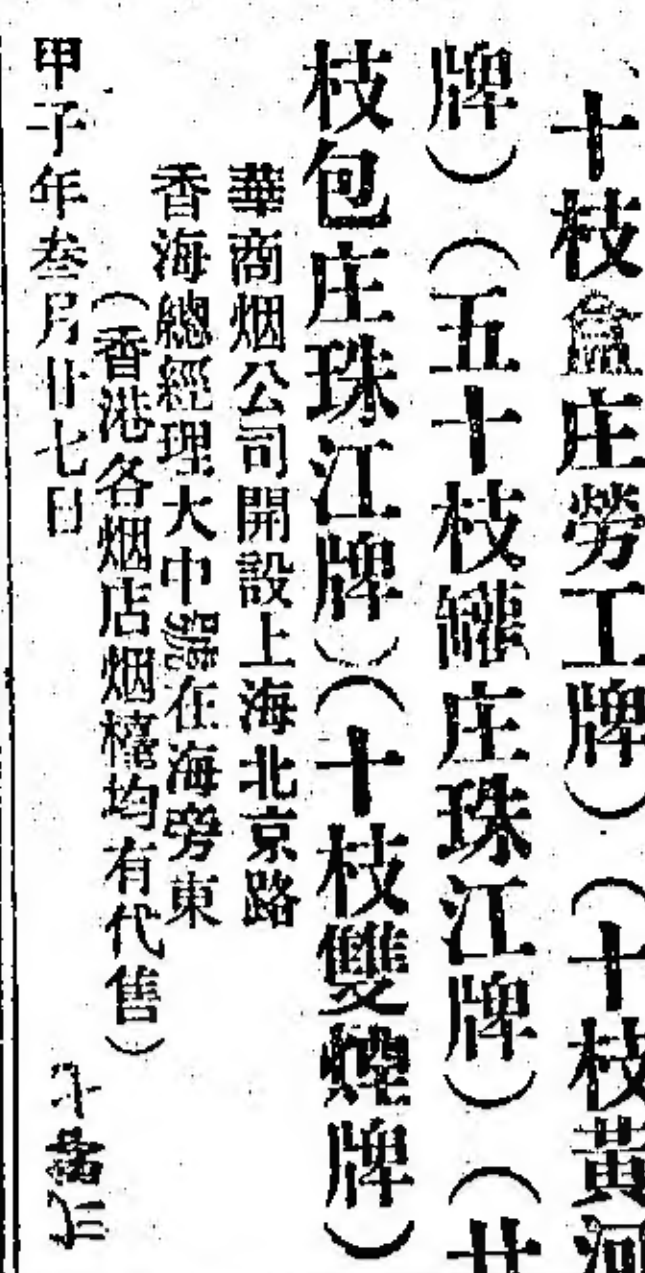 十枝盒庄勞工牌）（十枝黃河
牌）（五十枝罐庄珠江牌）（廿
枝包庄珠江牌）（十枝雙煙牌）
華商烟公司開設上海北京路
香海總經理大中號在海旁東
（香港各烟店烟檯均有代售）
甲子年叁月廿七日